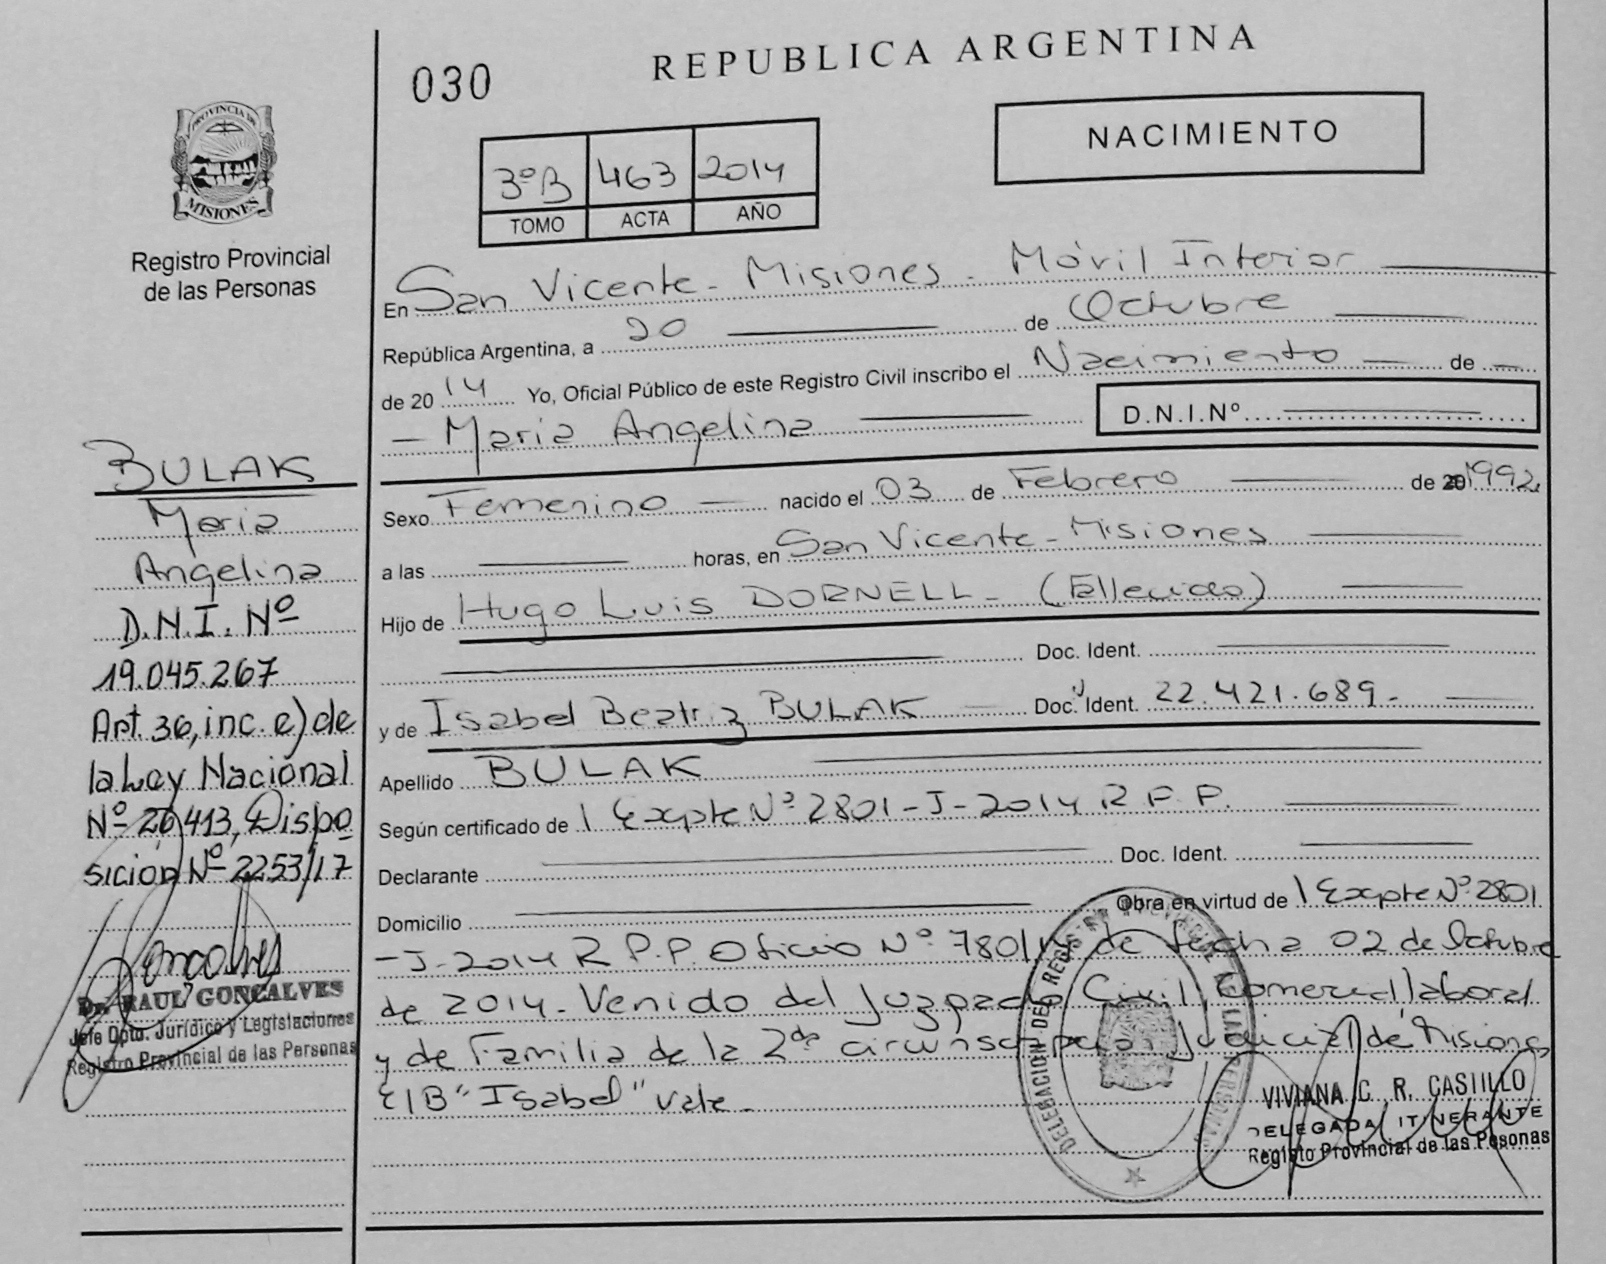 030
REPUBLICA ARGENTINA
NACIMIENTO
3ºB 463 2014
TOMO ACTA AÑO
PROVINCIA DE
MISIONES
Registro Provincial
de las Personas
En San Vicente - Misiones - Móvil Interior
República Argentina, a 20 de Octubre
de 2014 Yo, Oficial Público de este Registro Civil inscribo el Nacimiento de
- Maria Angelina
D.N.I.Nº
Sexo Femenino nacido el 03 de Febrero de 1992
a las horas, en San Vicente - Misiones
Hijo de Hugo Luis DORNELL - (Fallecido)
Doc. Ident.
y de Isabel Beatriz BULAK Doc. Ident. 22.421.689.-
Apellido BULAK
Según certificado de 1 Expte Nº 2801-J-2014 R.P.P.
Declarante Doc. Ident.
Domicilio Obra en virtud de 1 Expte Nº 2801
-J-2014 R.P.P. Oficio Nº 7801/14 de fecha 02 de Octubre
de 2014. Venido del Juzgado Civil, Comercial laboral
y de Familia de la 2da circunscripción Judicial de Misiones
E/B "Isabel" vale.
BULAK
Maria
Angelina
D.N.I. Nº
19.045.267
Art. 36, inc. e) de
la Ley Nacional
Nº 26.413, Dispo
sición Nº 2253/17
Dr. RAUL GONCALVES
Jefe Dpto. Jurídico y Legislaciones
Registro Provincial de las Personas
DELEGACION DEL REGISTRO PROVINCIAL DE LAS PERSONAS
VIVIANA C. R. CASTILLO
DELEGADA ITINERANTE
Registo Provincial de las Pesonas